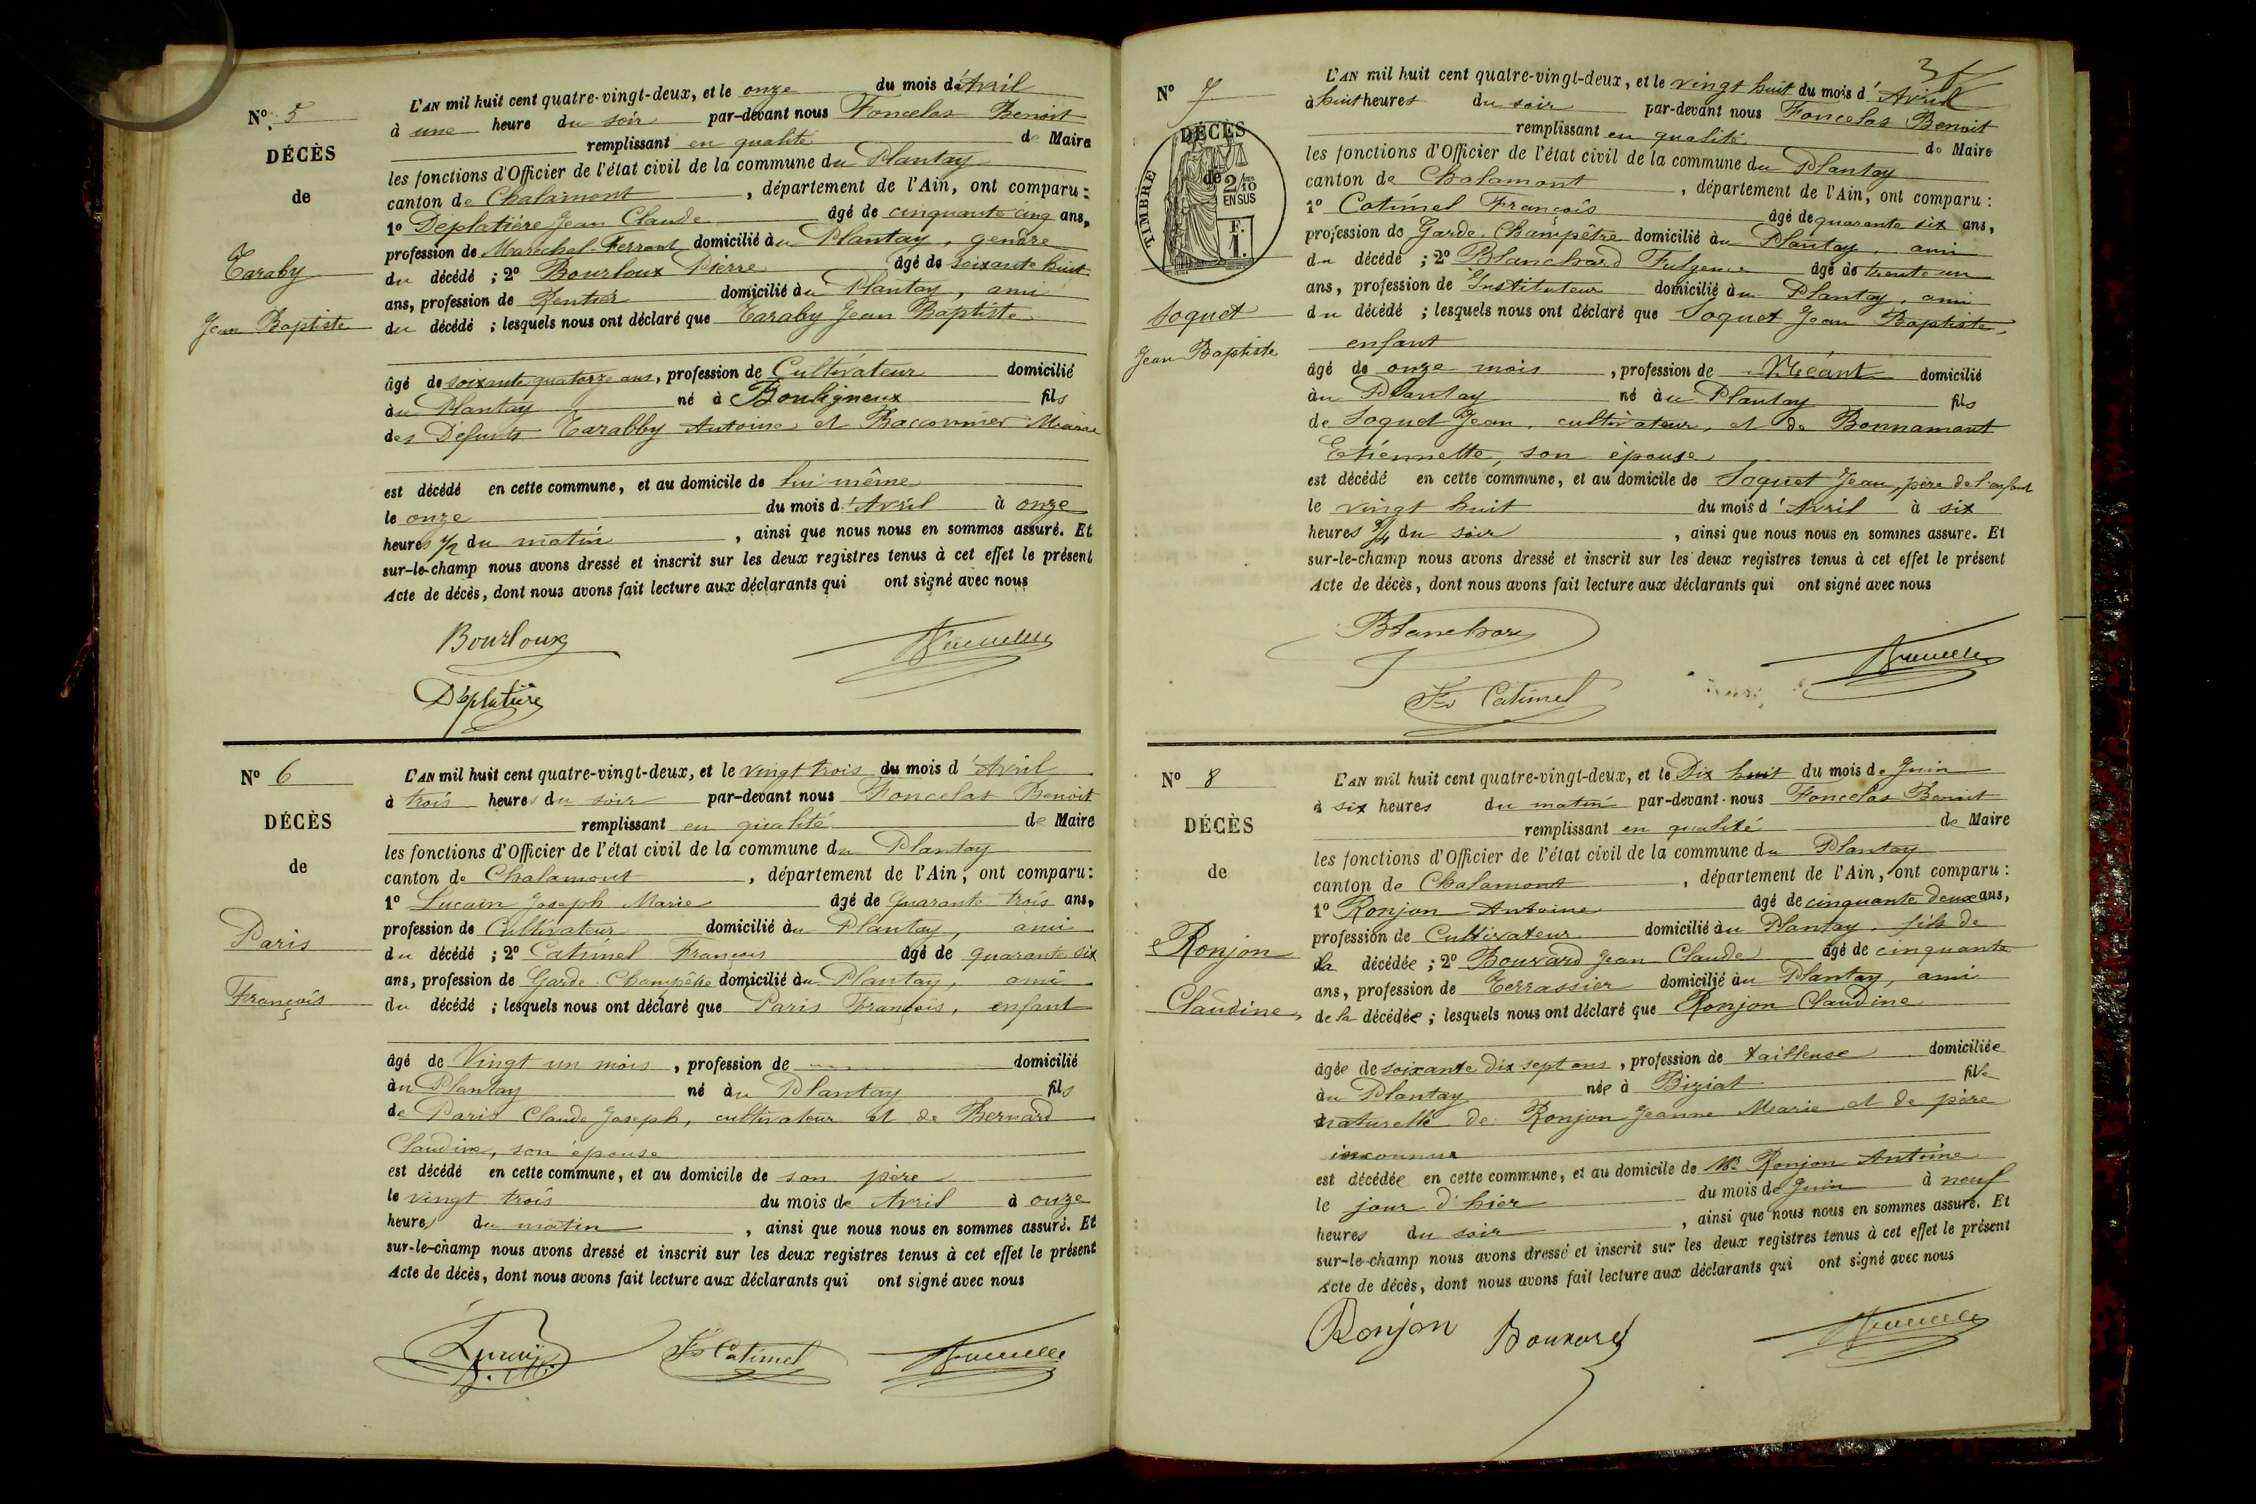 N° 5
DÉCÈS
de
Taraby
Jean Baptiste
L'AN mil huit cent quatre-vingt-deux, et le onze du mois d'Avril
à une heure du soir par-devant nous Foncelas Benoit
remplissant en qualité de Maire
les fonctions d'Officier de l'état civil de la commune du Plantay
canton de Chalamont, département de l'Ain, ont comparu :
1° Déplatière Jean Claude âgé de cinquante cinq ans,
profession de Maréchal-Ferrant domicilié au Plantay, gendre
du décédé ; 2° Bourloux Pierre âgé de soixante huit
ans, profession de Rentier domicilié au Plantay, ami
du décédé ; lesquels nous ont déclaré que Taraby Jean Baptiste
âgé de soixante quatorze ans, profession de Cultivateur domicilié
au Plantay né à Bouligneux fils
des Défunts Tarabby Antoine et Baconnier Marie
est décédé en cette commune, et au domicile de lui même
le onze du mois d'Avril à onze
heures 1/2 du matin, ainsi que nous nous en sommes assuré. Et
sur-le-champ nous avons dressé et inscrit sur les deux registres tenus à cet effet le présent
Acte de décès, dont nous avons fait lecture aux déclarants qui ont signé avec nous
Bourloux
Déplatière
N° 6
DÉCÈS
de
Paris
François
L'AN mil huit cent quatre-vingt-deux, et le vingt trois du mois d'Avril
à trois heures du soir par-devant nous Foncelas Benoit
remplissant en qualité de Maire
les fonctions d'Officier de l'état civil de la commune du Plantay
canton de Chalamont, département de l'Ain, ont comparu :
1° Lucain Joseph Marie âgé de Quarante trois ans,
profession de Cultivateur domicilié au Plantay, ami
du décédé ; 2° Catimel François âgé de quarante six
ans, profession de Garde-Champêtre domicilié au Plantay, ami
du décédé ; lesquels nous ont déclaré que Paris François, enfant
âgé de Vingt un mois, profession de domicilié
au Plantay né au Plantay fils
de Paris Claude Joseph, cultivateur et de Bernard
Claudine, son épouse
est décédé en cette commune, et au domicile de son père
le vingt trois du mois de Avril à onze
heures du matin, ainsi que nous nous en sommes assuré. Et
sur-le-champ nous avons dressé et inscrit sur les deux registres tenus à cet effet le présent
Acte de décès, dont nous avons fait lecture aux déclarants qui ont signé avec nous
Fs Catimel
N° 7
DÉCÈS
de
TIMBRE
2/10
EN SUS
F.
1.
Soquet
Jean Baptiste
L'AN mil huit cent quatre-vingt-deux, et le vingt huit du mois d'Avril
à huit heures du soir par-devant nous Foncelas Benoit
remplissant en qualité de Maire
les fonctions d'Officier de l'état civil de la commune du Plantay
canton de Chalamont, département de l'Ain, ont comparu :
1° Catimel François âgé de quarante six ans,
profession de Garde-Champêtre domicilié au Plantay, ami
du décédé ; 2° Blanchard Fulgence âgé de trente un
ans, profession de Instituteur domicilié au Plantay, ami
du décédé ; lesquels nous ont déclaré que Soquet Jean Baptiste,
enfant
âgé de onze mois, profession de Néant domicilié
au Plantay né au Plantay fils
de Soquet Jean, cultivateur, et de Bonnamont
Etiennette, son épouse
est décédé en cette commune, et au domicile de Soquet Jean, père de l'enfant
le vingt huit du mois d'Avril à six
heures 3/4 du soir, ainsi que nous nous en sommes assuré. Et
sur-le-champ nous avons dressé et inscrit sur les deux registres tenus à cet effet le présent
Acte de décès, dont nous avons fait lecture aux déclarants qui ont signé avec nous
Blanchard
Fs Catimel
N° 8
DÉCÈS
de
Ronjon
Claudine
L'AN mil huit cent quatre-vingt-deux, et le Dix huit du mois de Juin
à six heures du matin par-devant nous Foncelas Benoit
remplissant en qualité de Maire
les fonctions d'Officier de l'état civil de la commune du Plantay
canton de Chalamont, département de l'Ain, ont comparu :
1° Ronjon Antoine âgé de cinquante deux ans,
profession de Cultivateur domicilié au Plantay, fils de
la décédée ; 2° Bouvard Jean Claude âgé de cinquante
ans, profession de Terrassier domicilié au Plantay, ami
de la décédée ; lesquels nous ont déclaré que Ronjon Claudine
âgée de soixante dix sept ans, profession de tailleuse domiciliée
au Plantay née à Biziat fille
naturelle de Ronjon Jeanne Marie et de père
inconnu
est décédée en cette commune, et au domicile de Mr Ronjon Antoine
le jour d'hier du mois de Juin à neuf
heures du soir, ainsi que nous nous en sommes assuré. Et
sur-le-champ nous avons dressé et inscrit sur les deux registres tenus à cet effet le présent
Acte de décès, dont nous avons fait lecture aux déclarants qui ont signé avec nous
Ronjon Bouvard